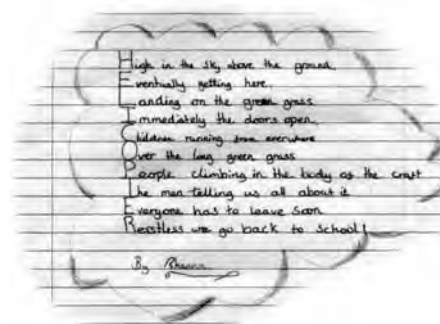 High in the sky above the ground.
Eventually getting here.
Landing on the green grass
Immediately the doors open.
Children running from everwhere
Over the long green grass
People climbing in the body of the craft
The man telling us all about it
Everyone has to leave soon
Restless we go back to school!
By